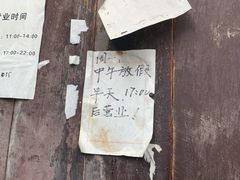 业时间
11:00-14:00
17:00-22:00
周一
中午放假
半天,17:00
后营业!